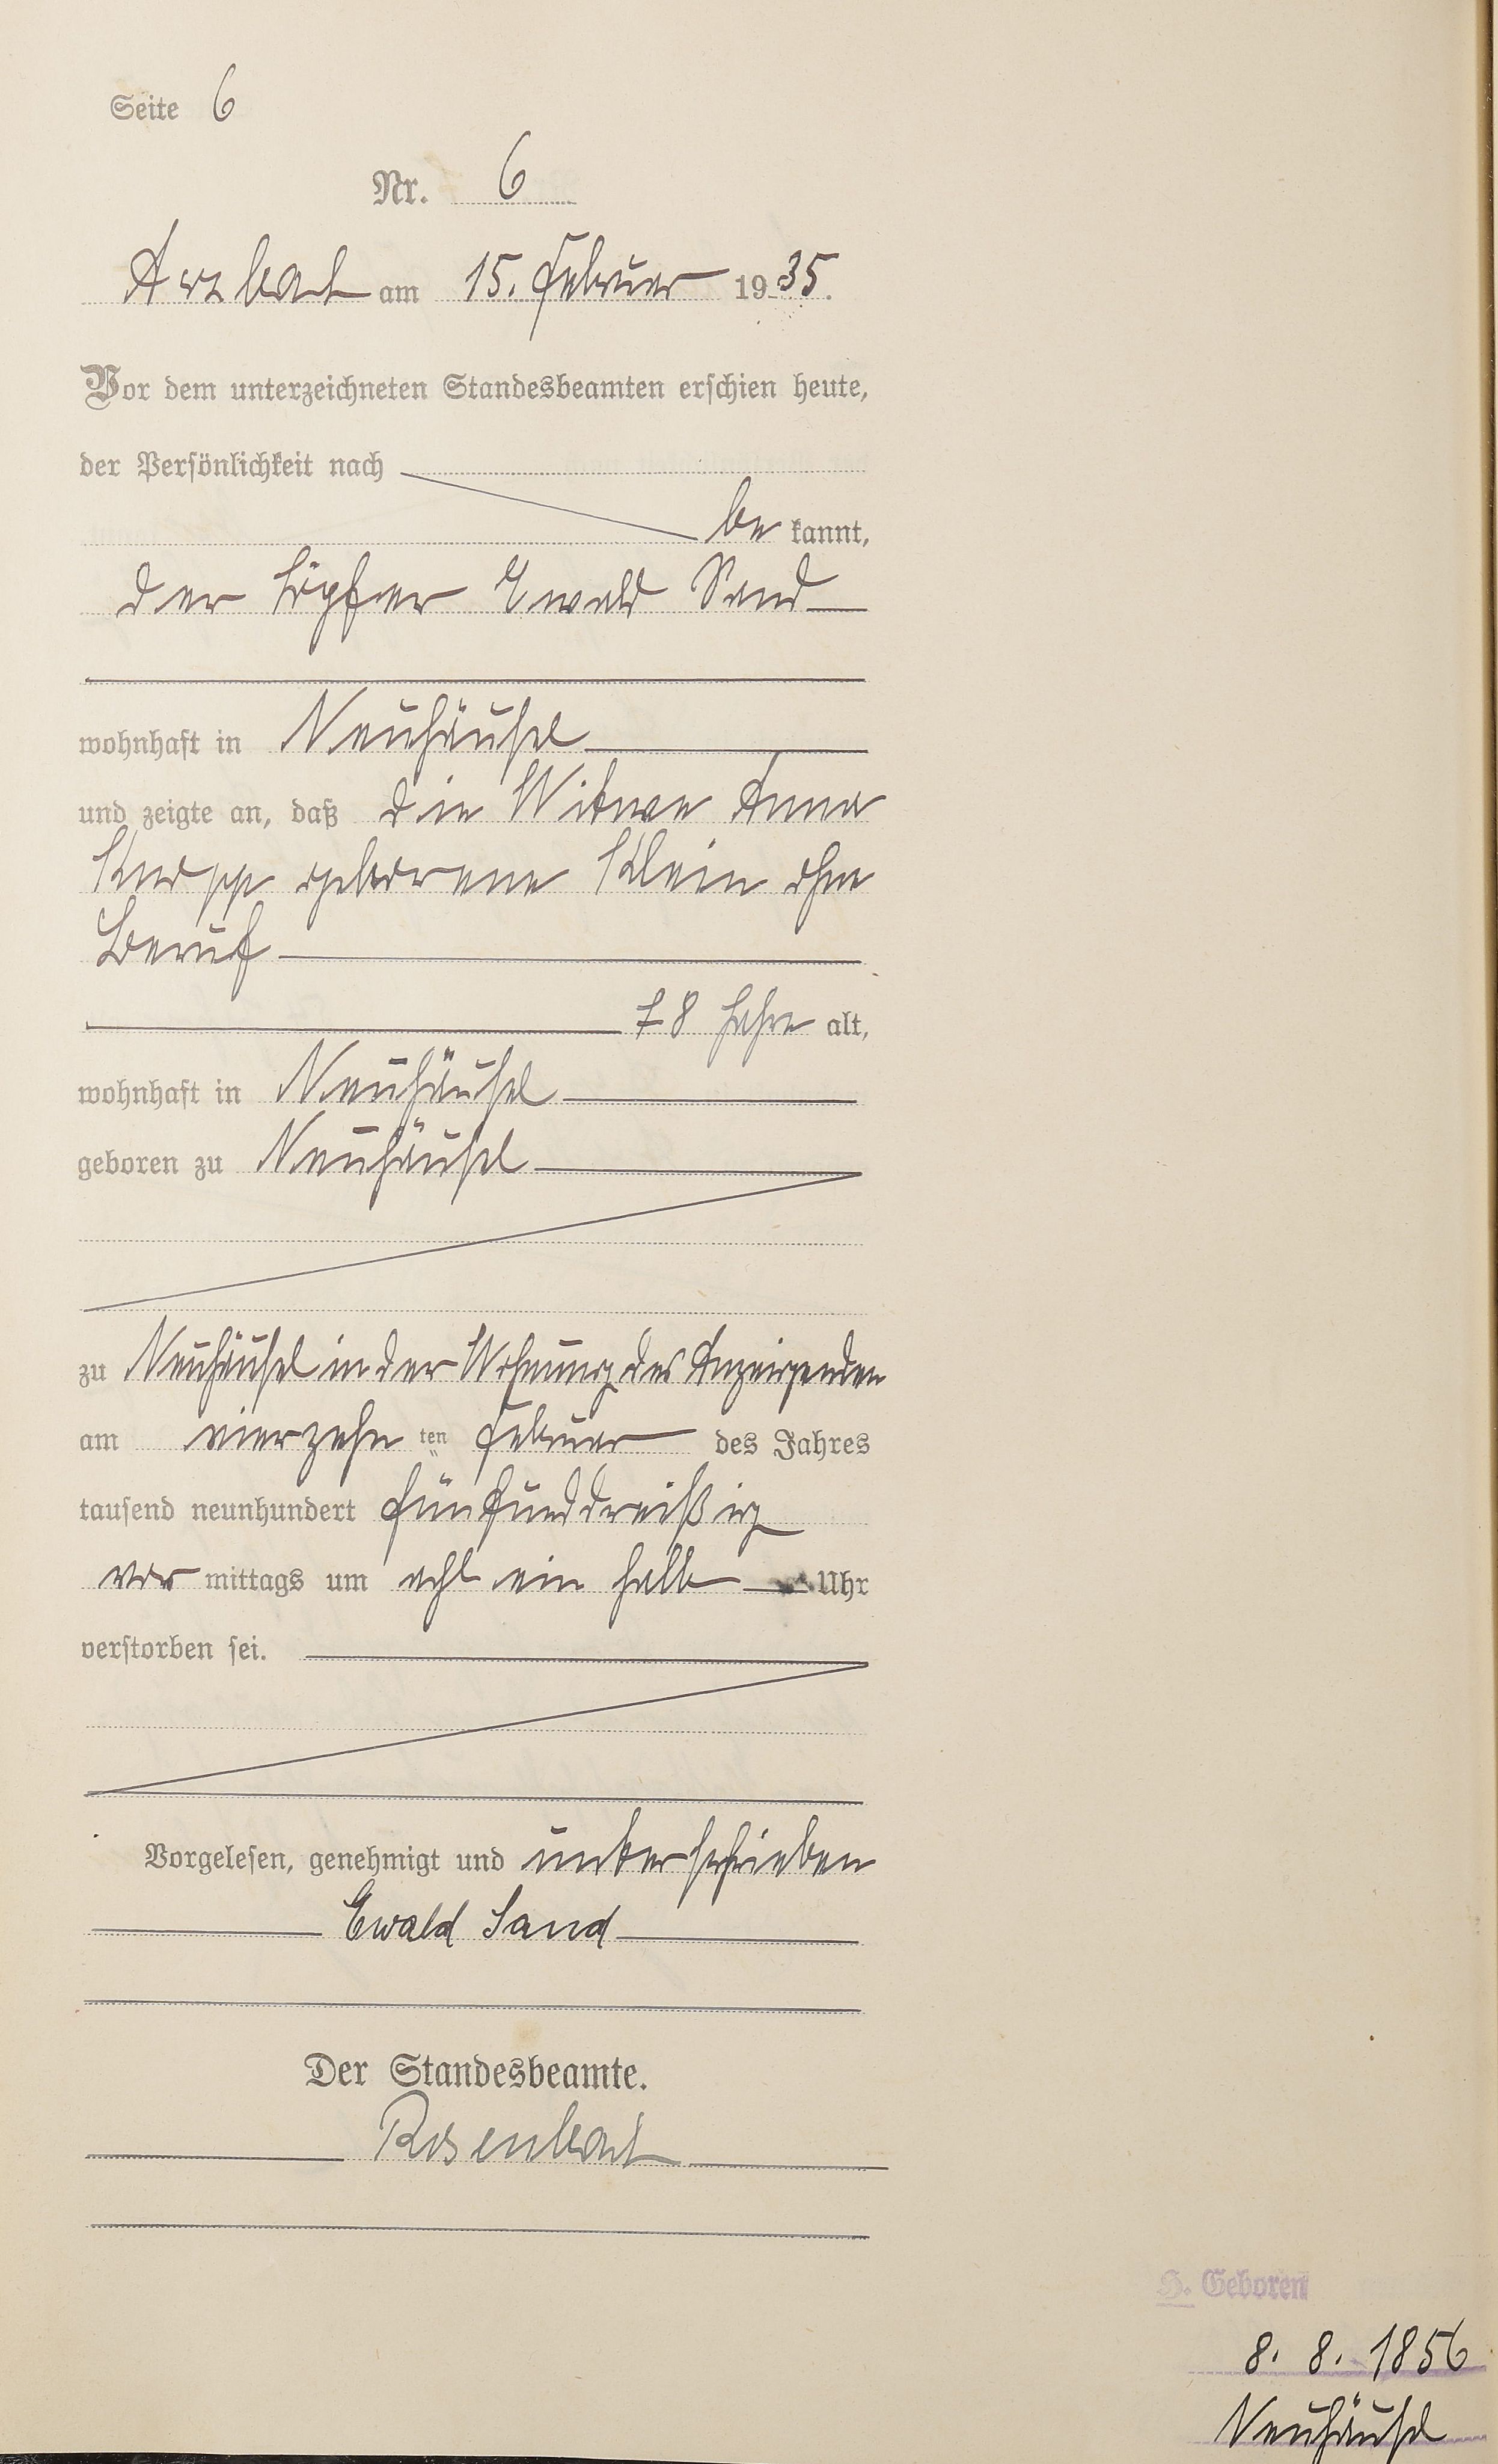 Seite 6
Nr. 6
Arzbach am 15. Februar 1935.
Vor dem unterzeichneten Standesbeamten erschien heute,
der Persönlichkeit nach
be kannt,
der Töpfer Ewald Sand
wohnhaft in Neuhäusel
und zeigte an, daß die Witwe Anna
Knopp geborene Klein ohne
Beruf
78 Jahre alt,
wohnhaft in Neuhäusel
geboren zu Neuhäusel
zu Neuhäusel in der Wohnung des Anzeigenden
am vierzehn ten Februar des Jahres
tausend neunhundert fünfunddreißig
vor mittags um acht ein halb Uhr
verstorben sei.
Vorgelesen, genehmigt und unterschrieben
Ewald Sand
Der Standesbeamte.
Rosenbach
H. Geboren
8. 8. 1856
Neuhäusel